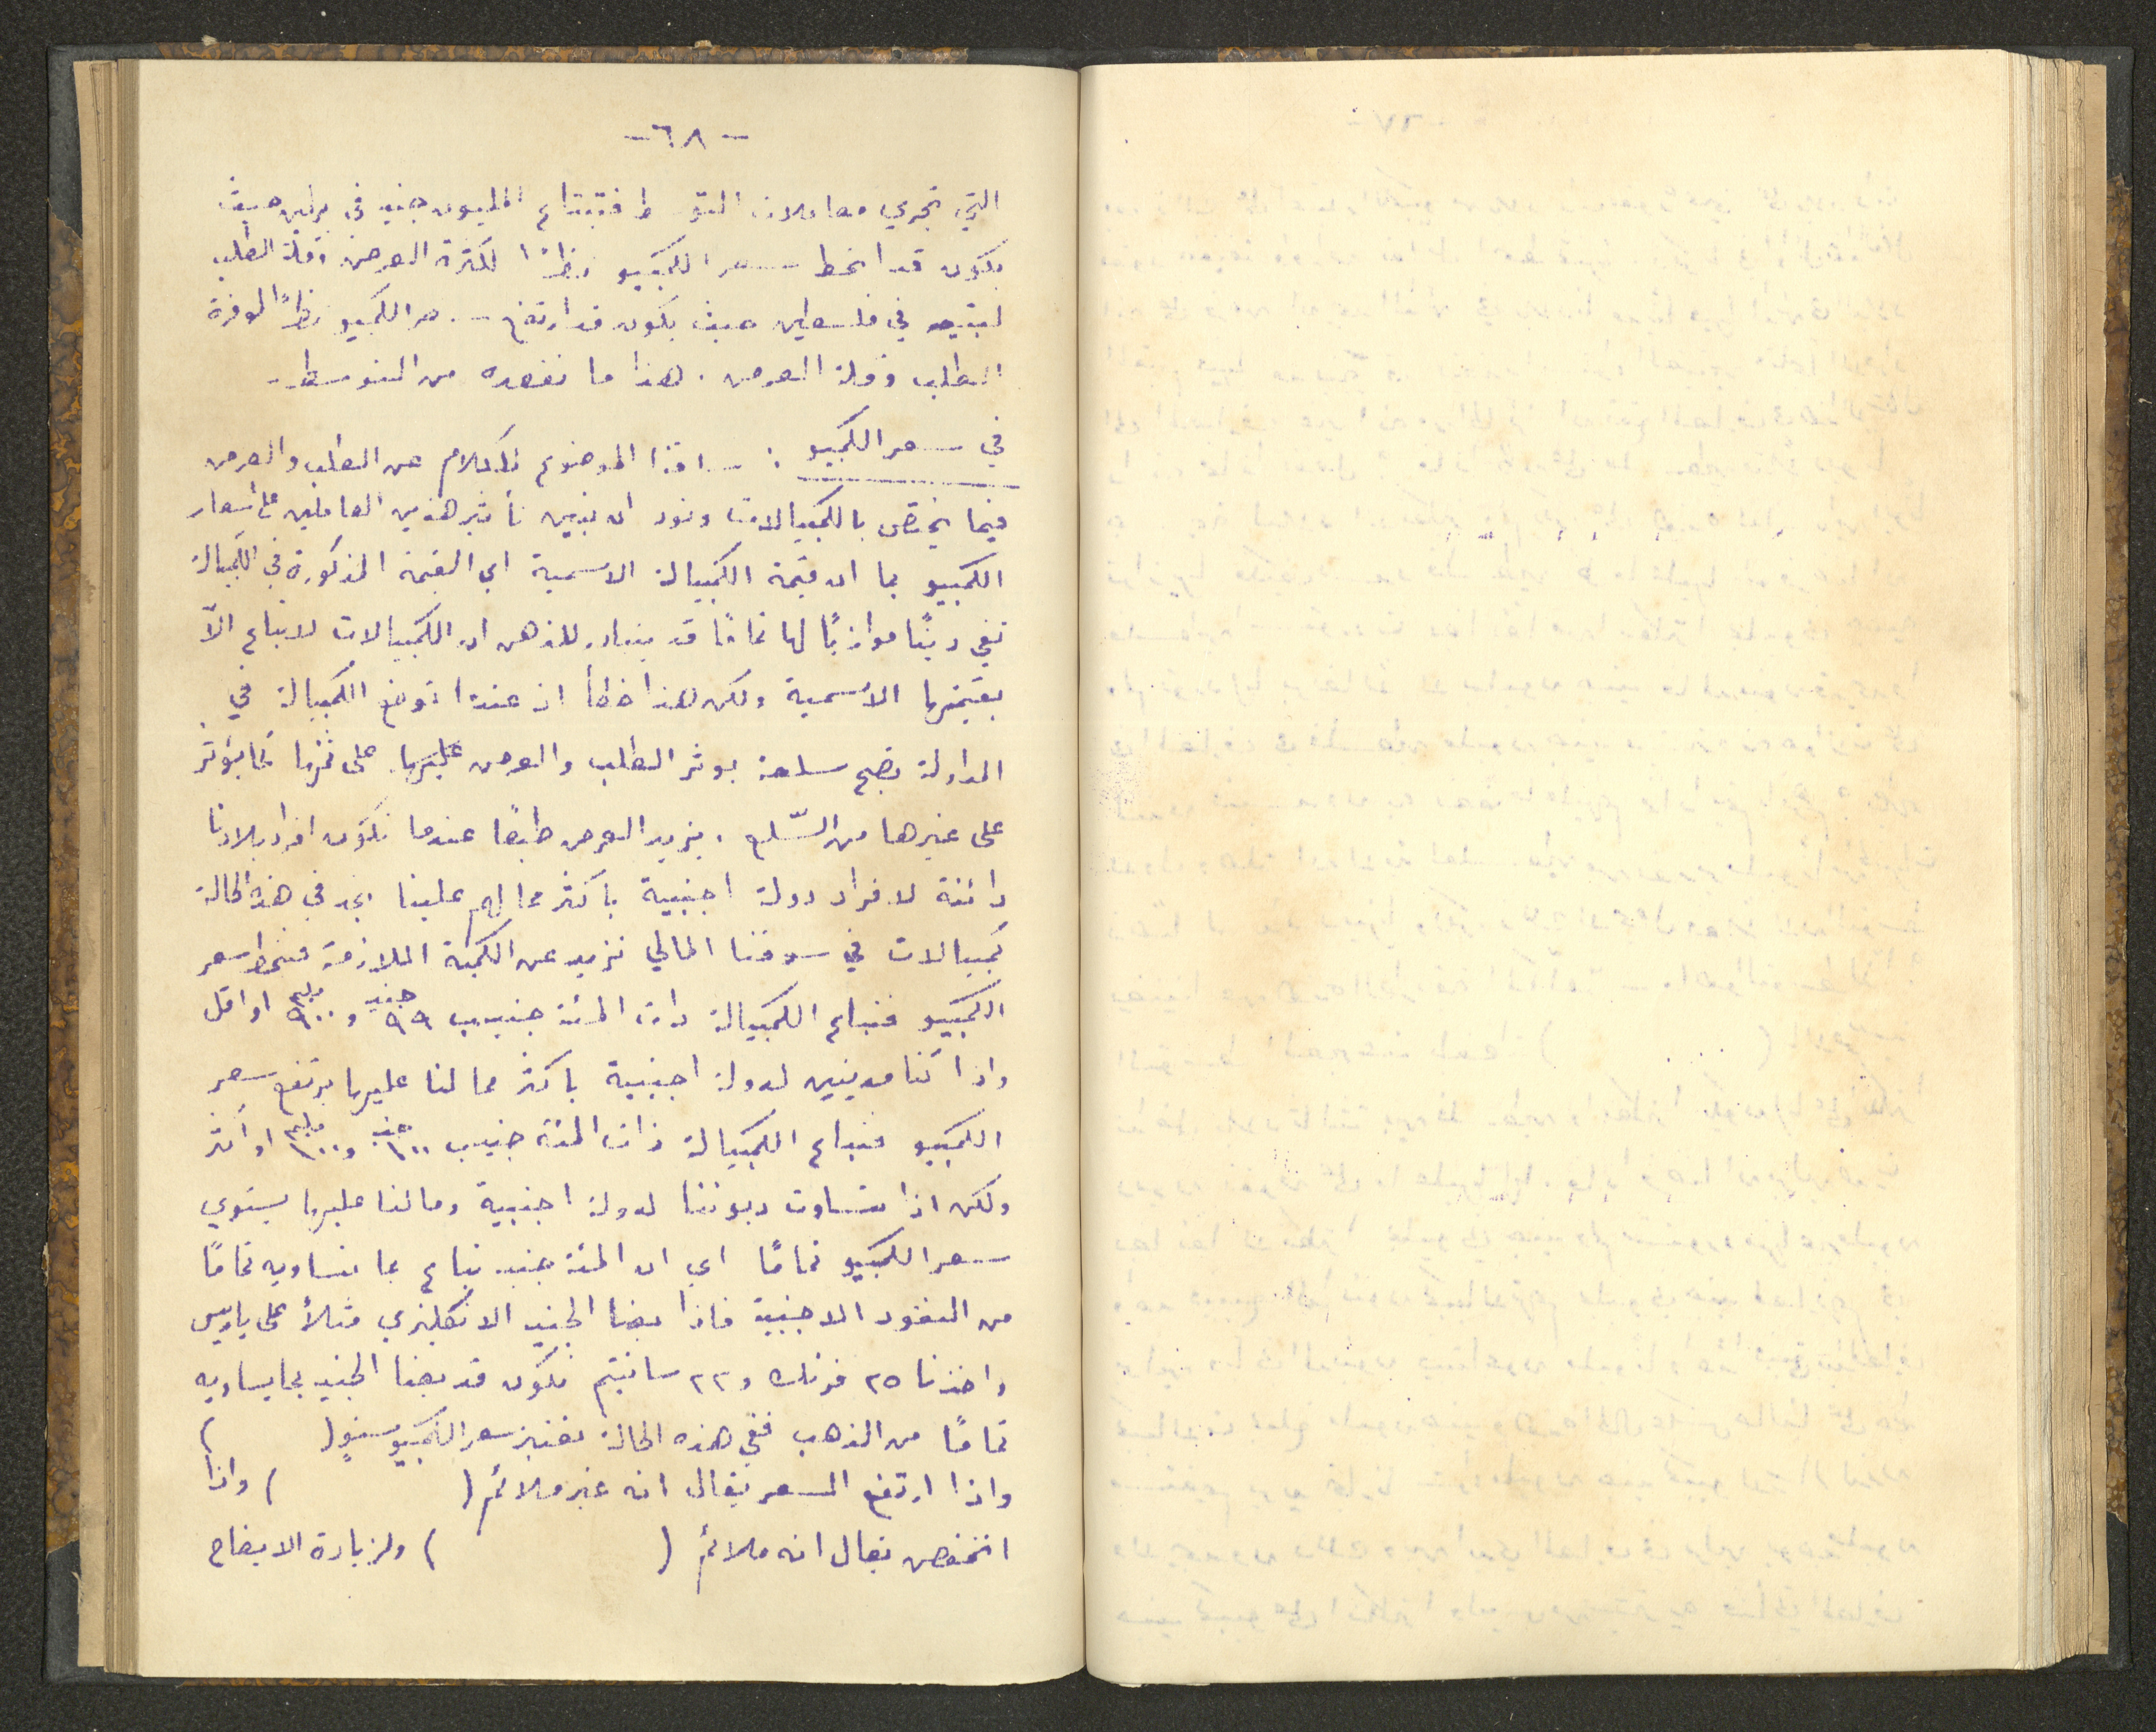 -٦٨-
التي تجري معاملات التوسط فتبتاع المليون جنيه في برلين حيث
يكون قد انحط سعر الكمبيو نظرًا لكثرة العرض وقلة الطلب
لبيعه في فلسطين حيث يكون قد ارتفع سعر الكمبيو نظرًا لوفرة
الطلب وقلة العرض . هذا ما نقصده من التوسط
في سعر الكمبيو : ساقنا الموضوع للكلام عن الطلب والعرض
فيما يختص بالكمبيالات ونود ان نبين تأثير هذين العاملين على أسعار
الكمبيو بما ان قيمة الكمبيالة الاسمية اي القيمة المذكورة في الكمبيالة
تفي دينًا موازيًا لها تمامًا قد يتبادر للذهن ان الكمبيالات لا تباع الّا
بقيمتها الاسمية ولكن هذا خطأ اذ عندما توضع الكمبيالة في
المداولة تصبح سلعة يوثر الطلب والعرض عليها على ثمنها كما يؤثر
على غيرها من السّلع . يزيد العرض طبعًا عندما تكون افراد بلادنا
دائنة لافراد دولة اجنبية باكثر مما لهم علينا نجد في هذه الحالة
كمبيالات في سوقنا المالي تزيد عن الكمية اللازمة فينحط سعر
الكمبيو فتباع الكمبيالة ذات المئة جنيه ب ٩٩ جنيه و ٩٠٠ مليم او اقل
واذا كنا مدينين لدولة اجنبية باكثر مما لنا عليها يرتفع سعر
الكمبيو فتباع الكمبيالة ذات المئة جنيه ب ١٠٠ جنيه و ١٠٠ مليم او أكثر
ولكن اذا تساوت ديوننا لدولة اجنبية وما لنا عليها يستوي
سعر الكمبيو تمامًا اي ان المئة جنيه تباع بما تساويه تمامًا
من النقود الاجنبية فاذا بعنا الجنيه الانكليزي مثلاً على باريس
واخذنا ٢٥ فرنك و ٢٢ سانتيم نكون قد بعنا الجنيه بما يساويه
تمامًا من الذهب ففي هذه الحالة نعتبر سعر الكمبيو مستوٍ (          )
واذا ارتفع السعر يقال انه غير ملائم (          ) واذا
انخفض يقال انه ملائم (          ) ولزيادة الايضاح